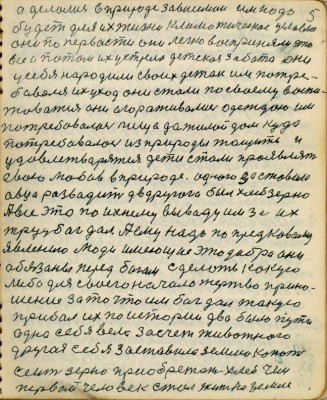 а делалися в природе зависимы им надо 5
будет для их жизни климатическое условие
они по первости они легко восприняли это
все и потом их устрия детская забота они
у себя народили своих деток им потре-
бовался их уход они стали по своему воспи-
товатся они сгораживали одеждою им
потребовалась пища да жилой дом куда
потребовалось из природы тащить и
удовлетваряться дети стали проявлять
свою любовь в природе. одного заставило
авца развадить а другого был хлеб зерно
А все это по ихнему вываду им за их
труд бог дал А ему надо по предковому
явлению люди имеющие это добро они
обязаны перед богом сделать какую
либо для своего начало жертво прино-
шение за то что им бог дал такую
прибал их по истории два было пути
одно себя вело за счет животного
другая себя заставила землю копать
сеить зерно приобретать хлеб чем
первый человек стал жить на земле.